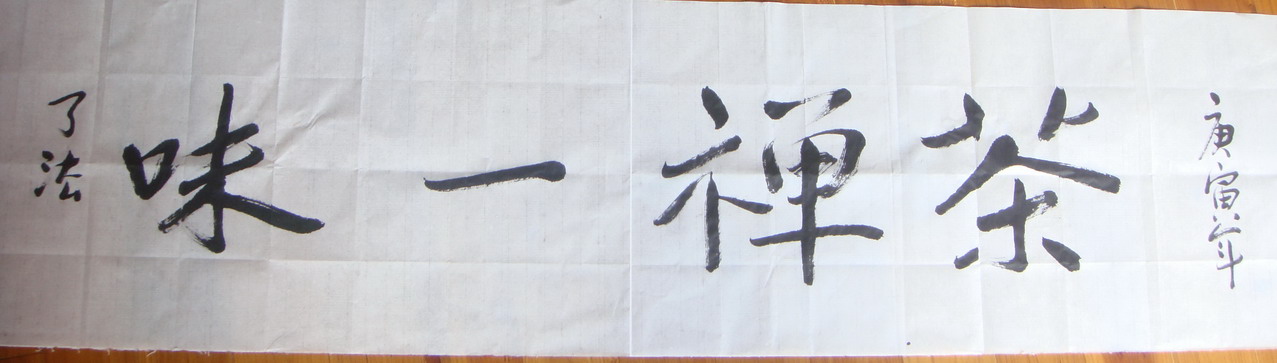 庚寅年
茶禅一味
了法